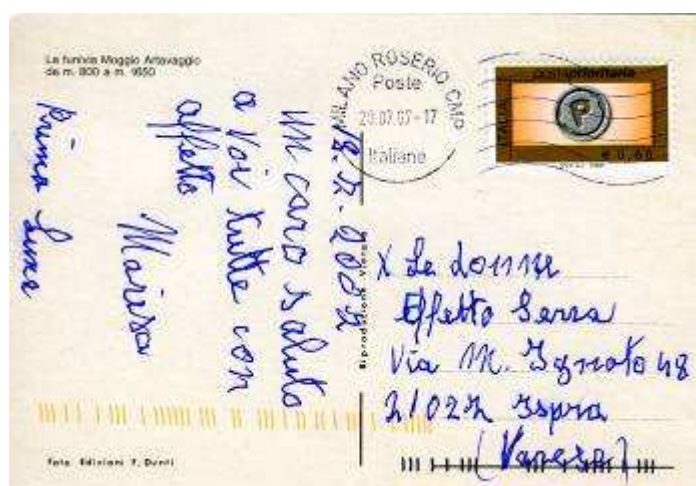 La funivia Moggio Artavaggio
da m. 800 a m. 1650
Un caro saluto
a voi tutte con
affetto
Marisa
MILANO ROSERIO CMP
Poste
Italiane
posta prioritaria
ITALIA
P
€ 0,60
Riproduzione Vietata
X Le donne
Effetto Serra
Via M. Ignoto 48
21027 Ispra
(Varese)
Foto Edizioni F. Dunti